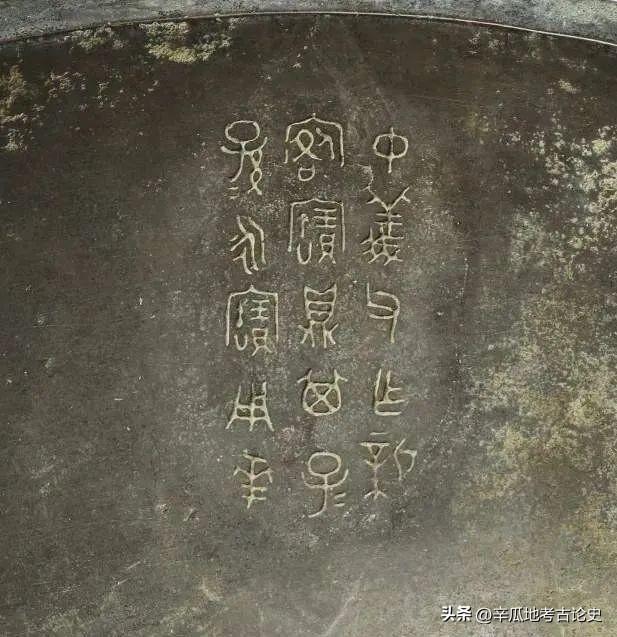 中義父乍新
客寶鼎其子=
孫=永寶用華
头条 @辛瓜地考古论史